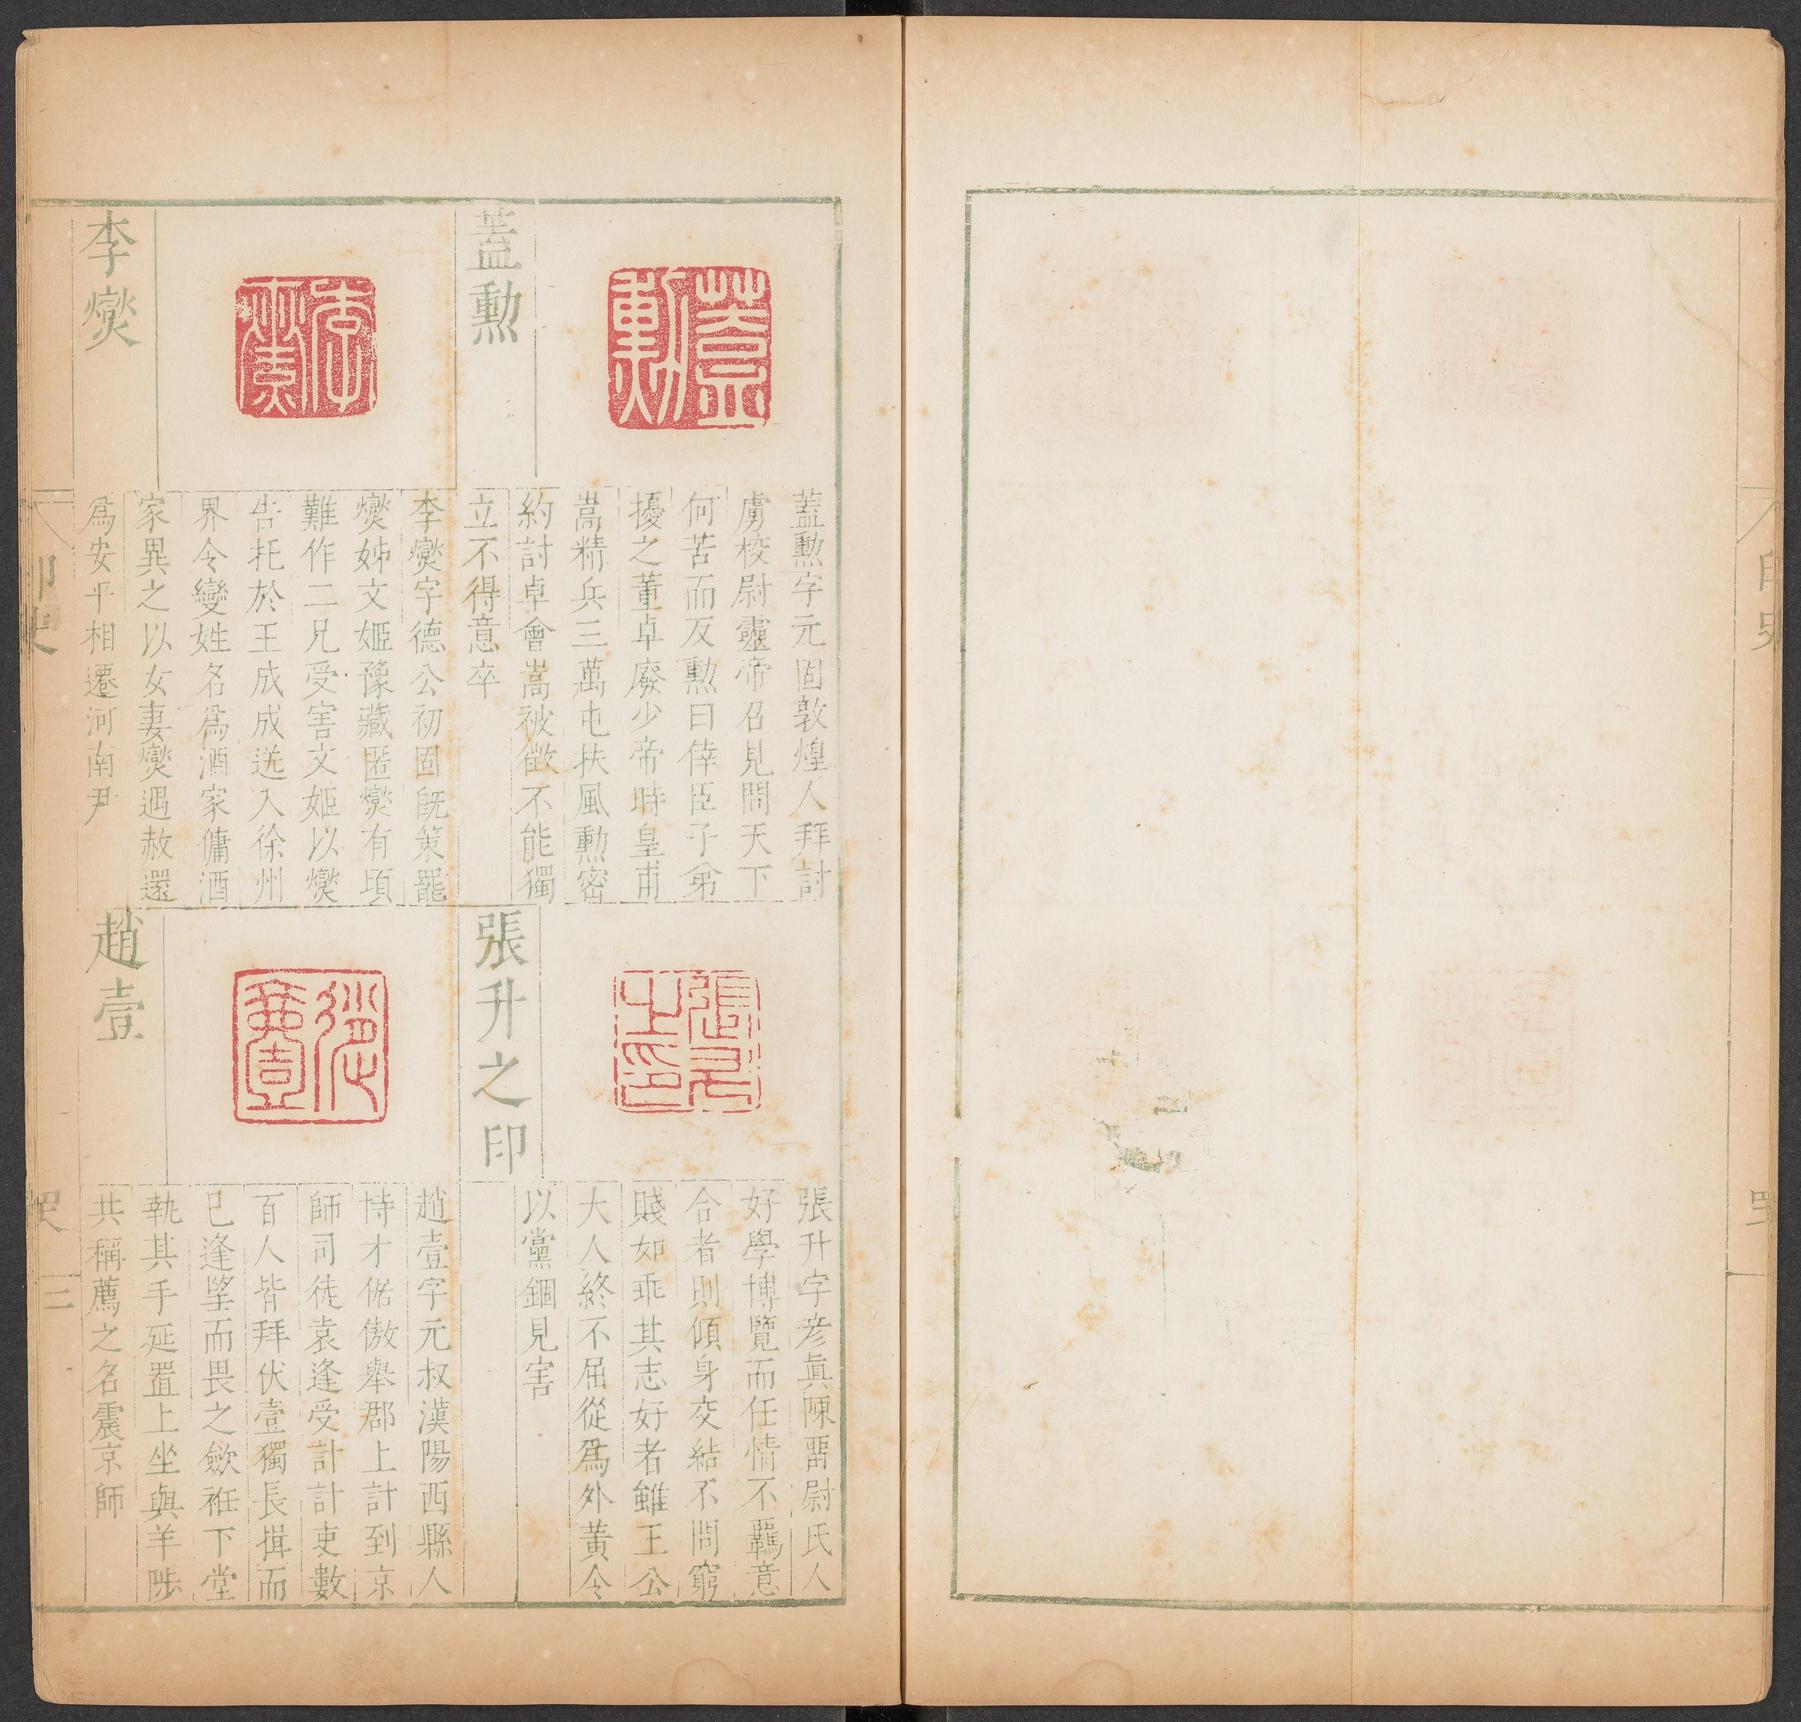 蓋勳
蓋勳字元固敦煌人拜討
虜校尉靈帝召見問天下
何苦而反勳曰倖臣子弟
擾之董卓廢少帝時皇甫
嵩精兵三萬屯扶風勳密
約討卓會嵩被徵不能獨
立不得意卒
李燮
李燮字德公初固旣策罷
燮姊文姬豫藏匿燮有頃
難作二兄受害文姬以燮
告托於王成成送入徐州
界令變姓名爲酒家傭酒
家異之以女妻燮遇赦還
爲安平相遷河南尹
張升之印
張升字彦眞陳畱尉氏人
好學博覽而任情不羈意
合者則傾身交結不問窮
賤如乖其志好者雖王公
大人終不屈從爲外黃令
以黨錮見害
趙壹
趙壹字元叔漢陽西縣人
恃才倨傲舉郡上計到京
師司徒袁逢受計計吏數
百人皆拜伏壹獨長揖而
已逢望而畏之歛袵下堂
執其手延置上坐與羊陟
共稱薦之名震京師
印史
三